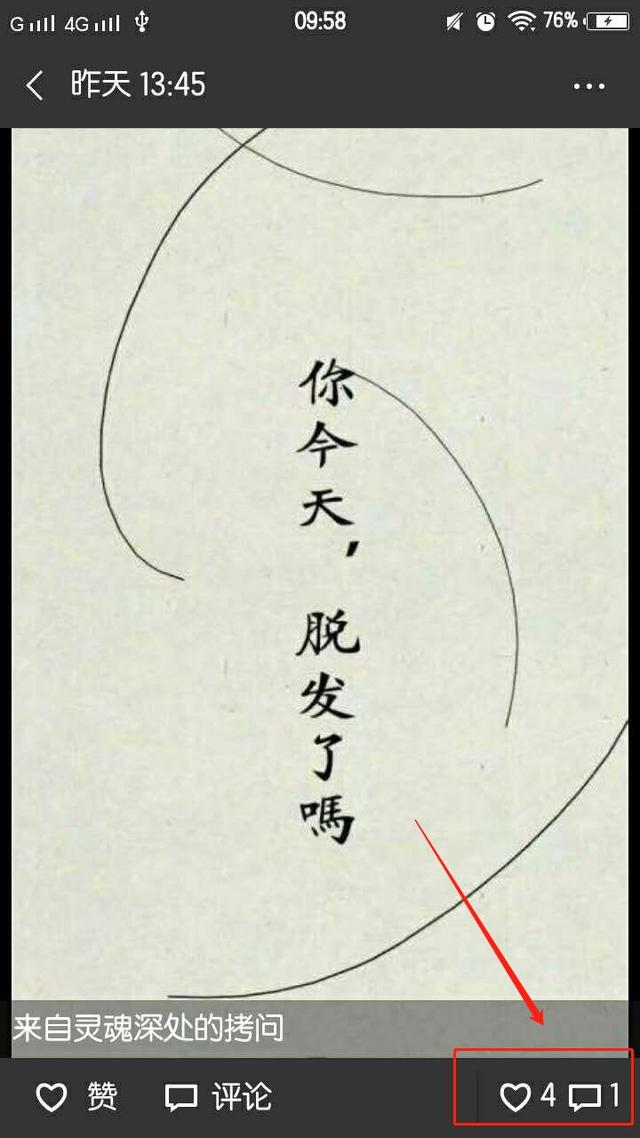 G 4G 09:58 76%
昨天 13:45
你今天，脱发了嗎
来自灵魂深处的拷问
赞 评论 4 1